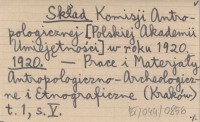 Skład Komisji Antro-
pologicznej [Polskiej Akademii
Umiejętności] w roku 1920.
1920. — Prace i Materjały
Antropologiczno-Archeologicz-
ne i Etnograficzne (Kraków)
t. 1, s. V.